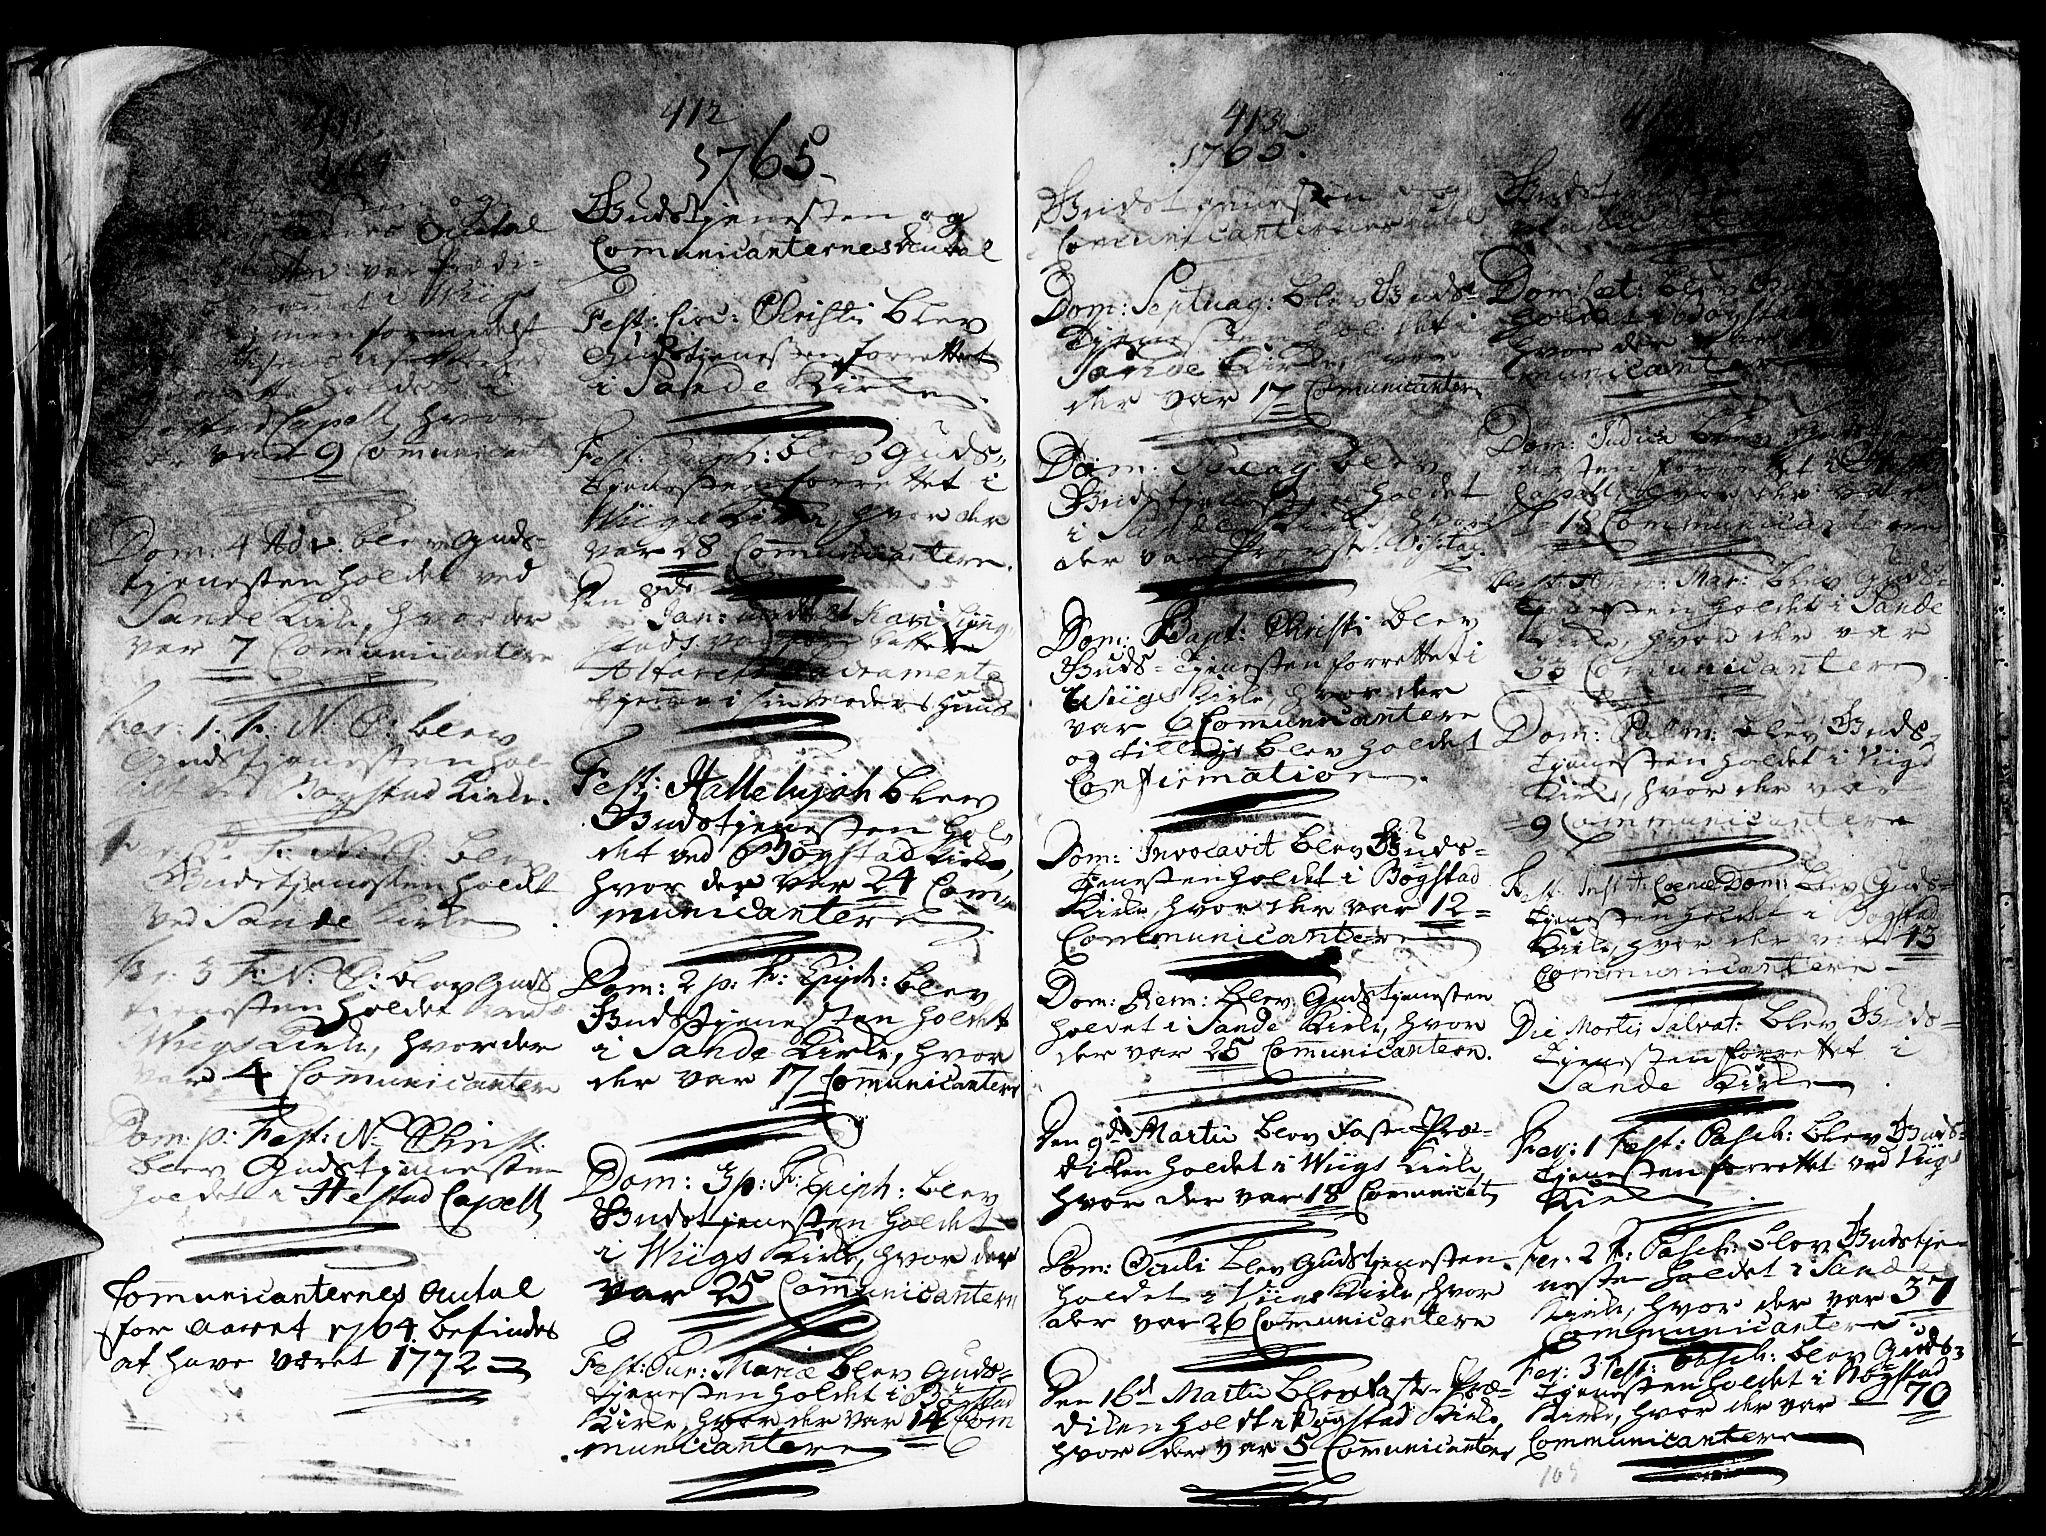 411
1764
og
Antal
var Prædi-
i Wiigs
men formedelst
holdes i
Capell, hvor
der var 9 Communicant
Dom: 4 Adv: blev Guds-
tjenesten holdet ved
Sande Kirke, hvor der
var 7 Communicantere
Fer: 1. F: N. C: blev
Gudstjenesten hol-
Bogstad Kirke.
blev
Gudstjenesten holdt
ved Sande Kirke
Fer: 3 F: N: C: blev Guds
tjenesten holdet
Wiigs Kirke, hvor der
var 4 Communicantere
Dom: p: Fest: N: Christ:
blev Gudstjenesten
holdet i Hestad Capell
Communicanternes Antal
for Aaret 1764 befindes
at have været 1772
412
1765
Gudstjenesten og
Communicanternes Antal
Fest: Circ: Christi blev
Gudstjenesten forrettet
i Sande Kirke
Fest: Epiph: blev Guds-
tjenesten forrettet i
Wiigs Kirke, hvor der
var 28 Communicantere.
Den 8de
Jan: Kari
Alterens Sacramente
hiemme i sin Moders Huus
Fest: Hallelujah blev
Gudstjenesten hol-
det ved Bogstad Kirke,
hvor der var 24 Com-
municantere
Dom: 2 p: F: Epiph: blev
Gudstjenesten holdet
i Sande Kirke, hvor
der var 17 Communicantere
Dom: 3 p: F: Epiph: blev
Gudstjenesten holdet
i Wiigs Kirke, hvor der
var 25 Communicantere
Fest: Pur: Mariæ blev Guds-
tjenesten holdet i Bogstad
Kirke, hvor der var 14 Com
municantere
413
1765.
Gudstjenesten og
Communicanternes Antal
Dom: Septuag: blev Guds-
tjenesten holdet i
Sande Kirke, hvor
der var 17 Communicantere.
Dom: Sexag: blev
Gudstjenesten holdet
i Sande Kirke, hvor
der var Provste Visitaz.
Dom: Bapt: Christi blev
Guds-Tjenesten forrettet i
Wiigs Kirke, hvor der
var 6 Communicantere
og tillige blev holdet
Confirmation.
Dom: Invocavit blev Guds-
tjenesten holdet i Bogstad
Kirke, hvor der var 12
Communicantere
Dom: Rem: blev Gudstjenesten
holdet i Sande Kirke, hvor
der var 25 Communicantere.
Den 9de Martii blev Faste-Præ-
diken holdet i Wiigs Kirke,
hvor der var 18 Communicant
Dom: Oculi blev Gudstjenesten
holdet i Viigs Kirke, hvor
der var 26 Communicantere
Den 16de Martii blev Faste-Præ-
diken holdt i Bogstad Kirke,
hvor der var 5 Communicanter
Dom: Læt: blev
holdet i Bogstad
hvor der var
municantere
Dom: Judica blev Gudstje-
nesten forrettet i
Capell, hvor der var
18 Communicantere
Fest: Annun: Mar: blev Guds-
tjenesten holdet i Sande
Kirke, hvor der var
33 Communicantere
Dom: Palm: blev Guds-
tjenesten holdet i Viigs
Kirke, hvor der var
9 Communicantere
Fest: Inst: Coenæ Dom: blev Guds-
tjenesten holdet i Bogstad
Kirke, hvor der var 43
Communicantere
Die Mortis Salvat: blev Guds-
tjenesten forrettet i
Sande Kirke
Fer: 1 Fest: Pasch: blev Guds-
tjenesten forrettet ved Viigs
Kirke
Fer: 2 F: Pasch: blev Gudstje-
nesten holdet i Sande
Kirke, hvor der var 37
Communicantere
Fer: 3 Fest: Pasch: blev Guds-
tjenesten holdet i Bogstad
Kirke, hvor der var 70
Communicantere